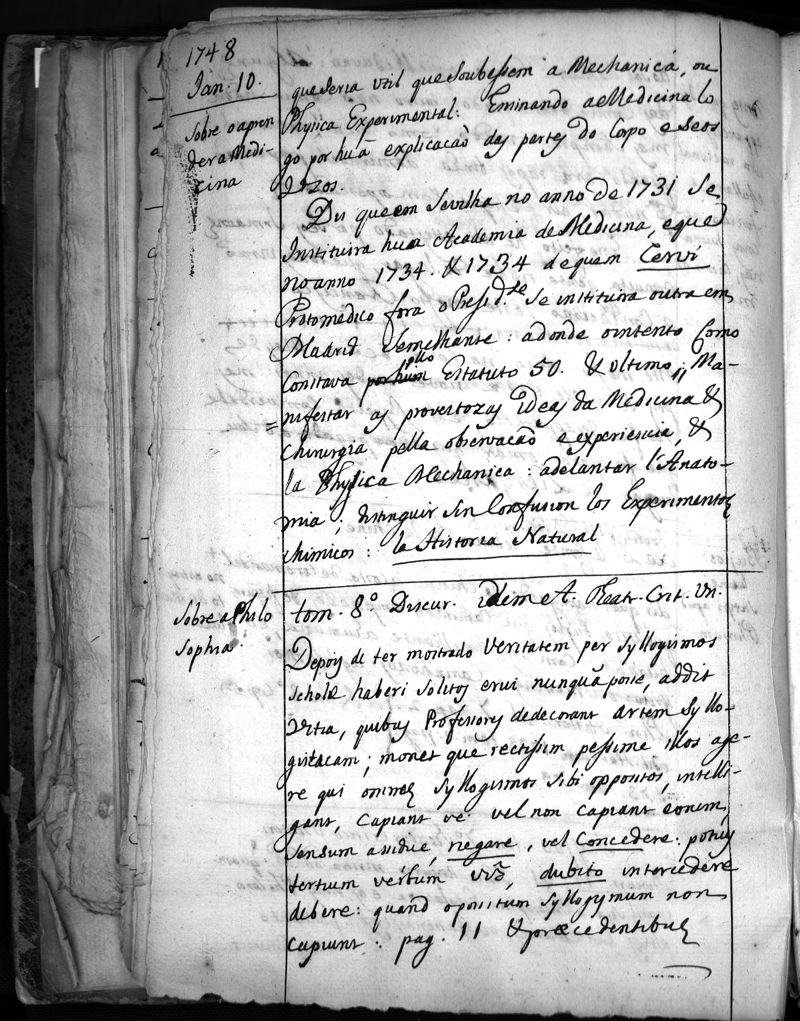 1748
Jan. 10.
Sobre o apren
der a Medi-
cina
que seria util que soubessem a Mechanica, ou
Physica Experimental: Eminando a eMedicina lo
go por huã explicacaõ das partes do Corpo e seos
uzos.
Dis que em Sevilha no anno de 1731 se
Instituira hua Academia de Medicina, e que
no anno 1734. & 1734 de quem Cervi
Protomedico fora o Presid.te se instituira outra em
Madrid semelhante: adonde o intento Como
Constava por hum pello Estatuto 50. & ultimo, Ma-
= nifestar as proveitozas ideas da Medicina &
Chirurgia pella observacaõ e experiencia, &
la Physica Mechanica: adelantar l'Anato-
mia; distinguir sin Confusion los Experimentos
chimicos: la Historia Natural
Sobre a Philo
Sophia.
tom. 8.º Discur. idem A. Theatr. Crit. Un.
Depois de ter mostrado Veritatem per Syllogismos
scholæ haberi solitos erui nunquã posse, addit
Vitia, quibus Professores dedecorant artem Syllo-
gisticam; monet que rectissim pessime illos age-
re qui omnes Syllogismos sibi oppositos, intelli-
gant, Capiant ve vel non capiant eorum,
sensum assidue, negare, vel Concedere: potius
tertium verbum dubito intercedere
debere: quand opositum Syllogysmum non
Capiunt: pag. 11 & præcedentibus